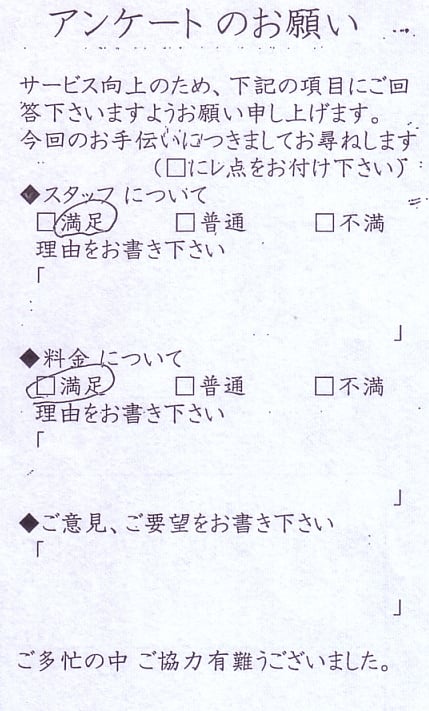 アンケートのお願い
サービス向上のため、下記の項目にご回
答下さいますようお願い申し上げます。
今回のお手伝いにつきましてお尋ねします
（□にレ点をお付け下さい）
◆スタッフについて
□満足 □普通 □不満
理由をお書き下さい
「
」
◆料金について
□満足 □普通 □不満
理由をお書き下さい
「
」
◆ご意見、ご要望をお書き下さい
「
」
ご多忙の中 ご協力有難うございました。